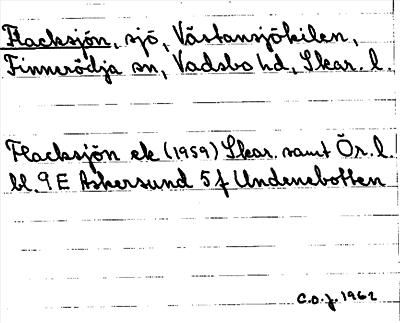 Flacksjön, sjö, Västansjökilen,
Finnerödja sn, Vadsbo hd, Skar. l.
Flacksjön ek (1959) Skar. samt Ör. l.
bl. 9E Askersund 5f Undenebotten
C.O.J. 1962